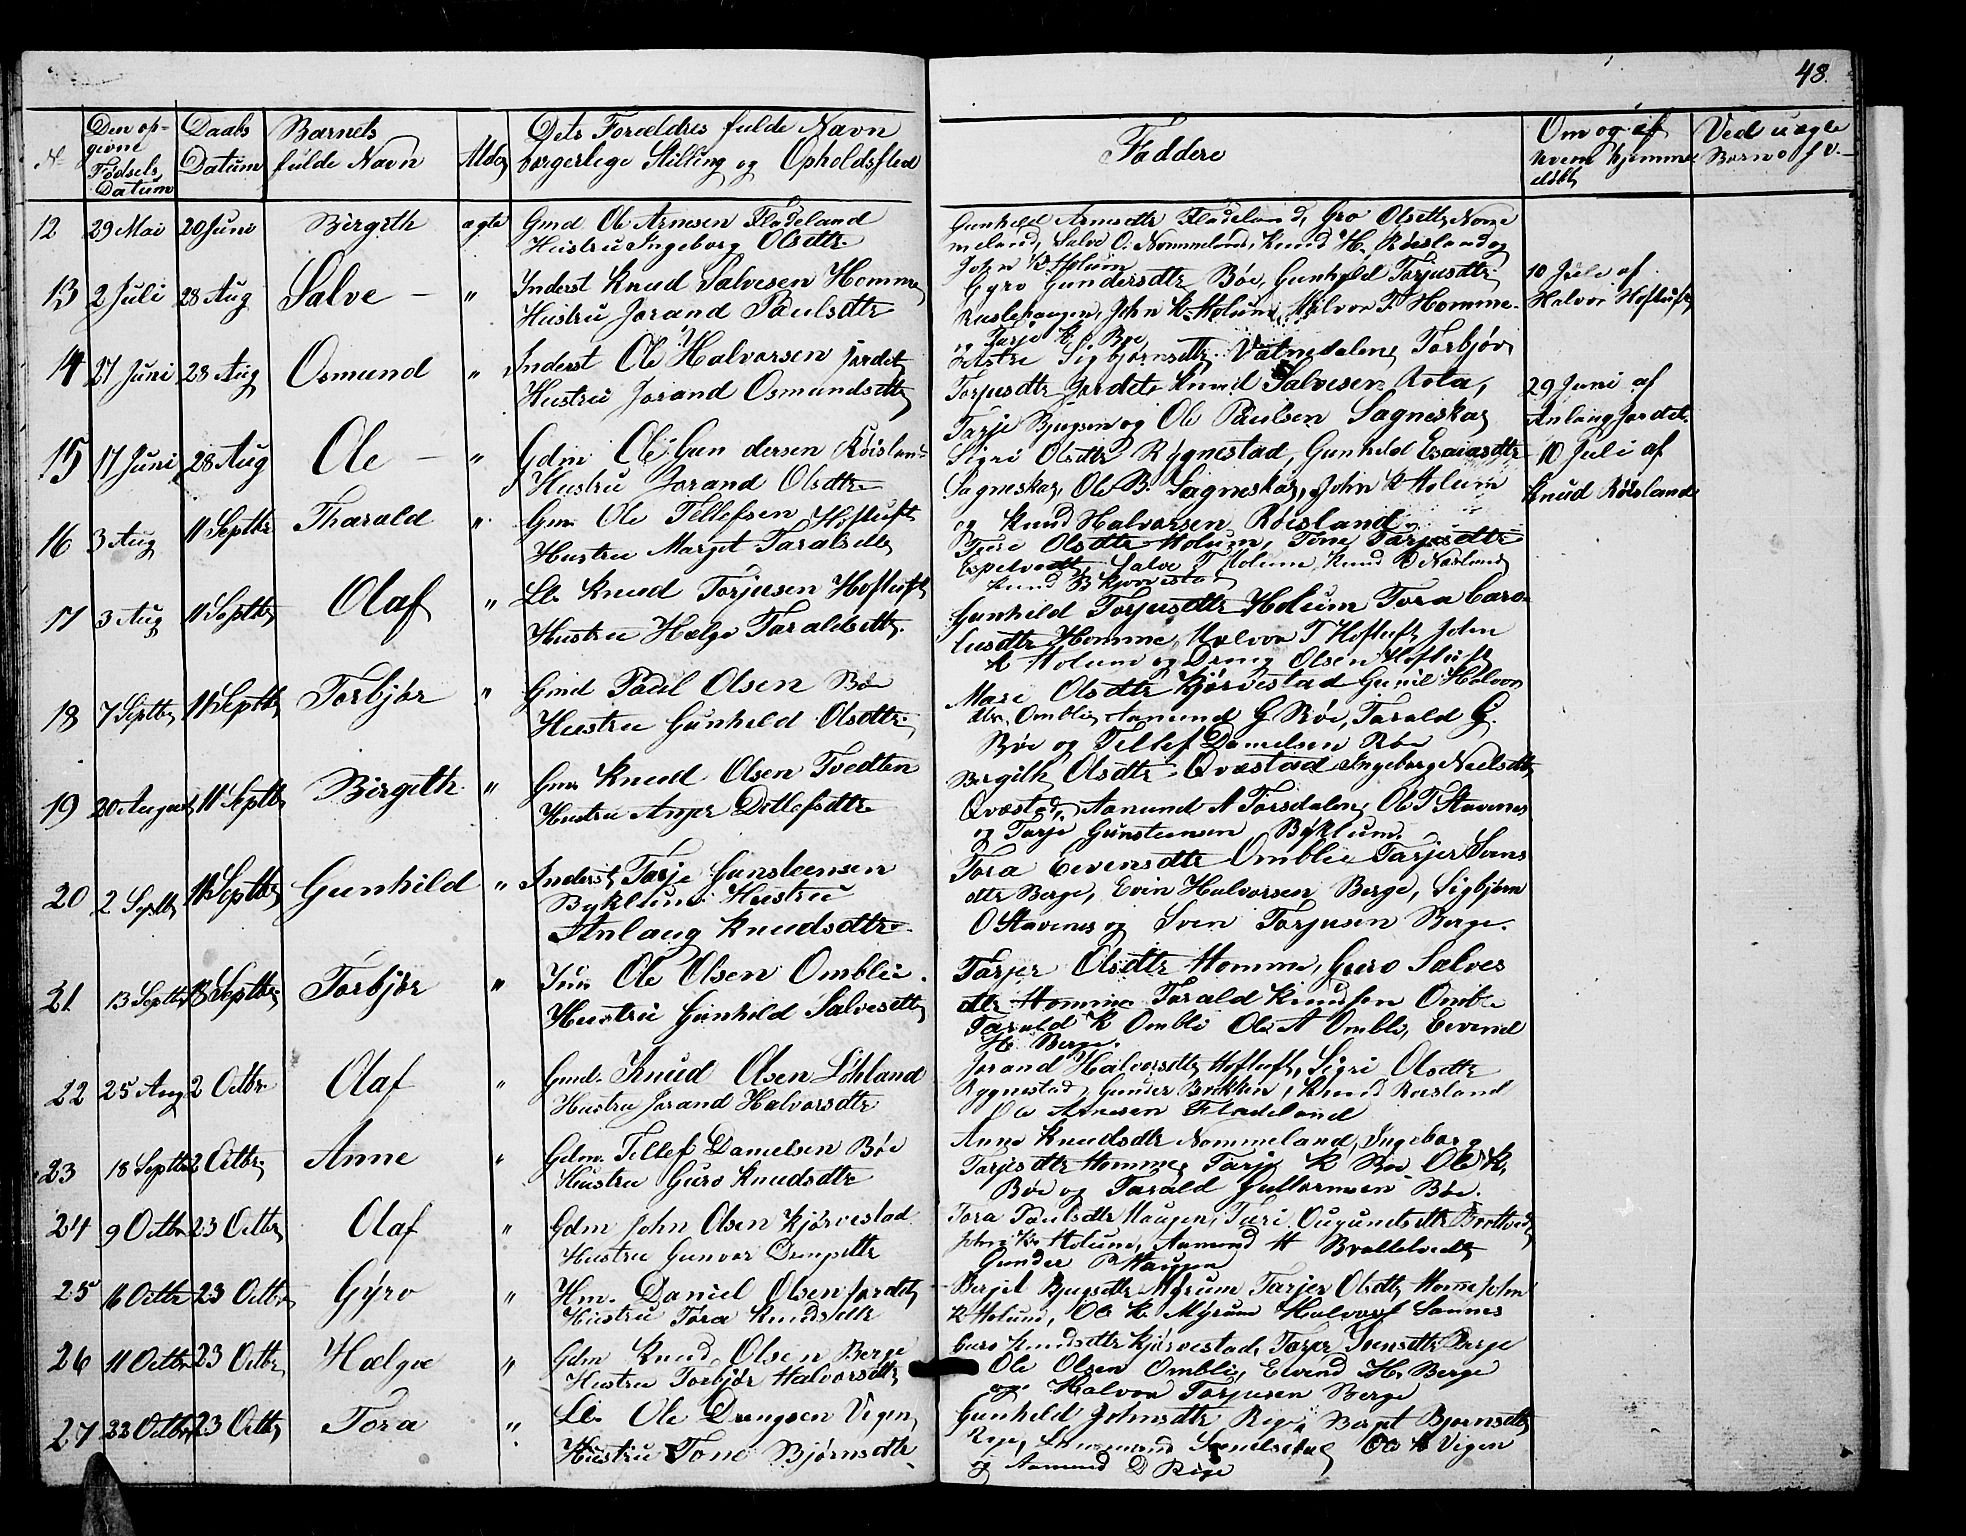 48.
No
Den op-
givne
Fødsels
Datum
Daabs
Datum
Barnets
fulde Navn
Dets Forældres fulde Navn
borgerlige Stilling og Opholdssted
Faddere
Om og af
hvem hjemme
døbt
Ved uægte
Børn
12 29 Mai 20 Juni Birgith ægte Gmd Ole Arnesen Fladeland
Hustru Ingeborg Olsdtr.
Gunhild Arnesdtr Fladeland, Gro Olsdtr Nome
meland, Salve O. Nommeland, Knud H. Røisland og
John K Holum
13 2 Juli 28 Aug Salve – " Inderst Knud Salvesen Homme
Hustru Jorand Paulsdtr
Gyro Gundersdtr Bøe, Gunhild Torjusdtr
John K. Holum, Halvor T Homme
og Tarje K. Bøe
10 Juli af
Halvor Hoftuft
14 27 Juni 28 Aug Osmund " Inderst Ole Halvorsen Jordet
Hustru Jorand Osmundsdtr
Sigbjørnsdtr Vatnedalen, Torbjør
Torjusdtr Jordet Knud Salvesen
Tarje Bjugsen og Ole Paulsen Sagneskar
29 Juni af
Anlaug Jordet
15 17 Juni 28 Aug Ole – " Gdm Ole Gundersen Røisland
Hustru Jorand Olsdtr
Sigri Olsdtr Rygnestad, Gunhild Esaiasdtr
Sagneskar, Ole B. Sagneskar, John K Holum
og Knud Halvorsen Røisland
10 Juli af
Knud Røisland
16 3 Aug 11 Septbr Tharald " Gm. Ole Tellefsen Hoftuft
Hustru Margit Taralsdtr
Turi Olsdtr Holum, Tone Tarjusdtr
Espetvedt, Salve T Holum, Knud
Knud B Kjørvestad
17 3 Aug 11 Septbr Olaf " Knud Torjusen Hoftuft
Hustru Hælge Taraldsdtr.
Gunhild Torjusdtr Holum Tora Caro-
lusdtr Homme, Halvor T Hoftuft, John
K Holum og Dreng Olsen Hoftuft
18 7 Septbr 11 Septbr Torbjør " Gmd Povel Olsen Bøe
Hustru Gunhild Olsdtr.
Mari Olsdtr Kjørvestad Gunil Halvor
dtr. Omblie, Aamund G Bøe, Tarald G.
Bøe og Tellef Danielsen Bøe
19 20 August 11 Septbr Birgith " Gm. Knud Olsen Tvedten
Hustru Anjer Detlefsdtr
Bergith Olsdtr Qvæstad Ingeborg Neelsdtr
Qvæstad, Aanund A Torsdalen, Ole T Stavenes
og Tarje Gunsteensen Byklum.
20 2 Septb 11 Septbr Gunhild " Inderst Tarje Gunsteensen
Byklum Hustru
Anlaug Knudsdtr.
Tora Eevensdtr Omblie Tarjer Svens
dtr Berge, Evin Halvorsen Berge, Sigbjørn
O Stavenes og Sven Torjusen Berge.
21 13 Septbr 18 Septbr Torbjør " Ole Olsen Omblie.
Hustru Gunhild Salvesdtr
Tarjer Olsdtr Homme, Guro Salves
dtr Homme Tarald Knudsen Omble
Tarald K Ombli Ole A Ombli, Eevind
H. Berge.
22 25 Aug 2 Octbr Olaf " Gmd. Knud Olsen Løhland
Hustru Jorand Halvorsdtr
Jorand Halvorsdtr Hoftuft, Sigri Olsdtr
Rygnestad, Gunder Brokken, Knud Røisland
Ole Arnesen Fladeland
23 18 Septbr 2 Octbr Anne " Gdm. Tellef Danielsen Bøe
Hustru Guro Knudsdtr
Anne Knudsdtr Nommeland, Ingeborg
Tarjesdtr Homme, Tarje K Bøe Ole K.
Bøe og Tarald Guttormsen Bøe.
24 9 Octbr 23 Octbr Olaf " Gdm John Olsen Kjørvestad
Hustru Gunvor
Tora Paulsdtr Haugen, Turi
John K. Holum, Aamund H Brottveit
Gunder P Haugen
25 16 Octbr 23 Octbr Gyro " Hm. Daniel Olsen Jordet
Hustru Tora Knudsdtr
Bergit Bjugsdtr Myrum Tarjer Olsdtr Home John
K Holum, Ole K. Myrum Halvor Sannes
26 11 Octbr 23 Octbr Hælge " Gdm Knud Olsen Berge
Hustru Torbjør Halvorsdtr
Guro Knudsdtr Kjørvestad, Tarjer Svensdtr Berge
Ole Olsen Omblie, Eivind H. Berge
og Halvor Torjusen Berge
27 22 Octbr 23 Octbr Tora " Ole Drengsen Vigen
Hustru Tone Bjørnsdtr.
Gunhild Johnsdtr Rige, Bergit Bjørnsdtr
Rige, Ole K Vigen
og Aamund D Rige